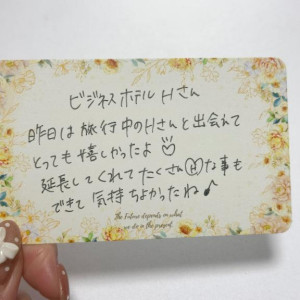 ビジネスホテル Hさん
昨日は旅行中のHさんと出会えて
とっても嬉しかったよ♡
延長してくれてたくさんⒽな事も
できて気持ちよかったね♪
The future depends on what
we do in the present